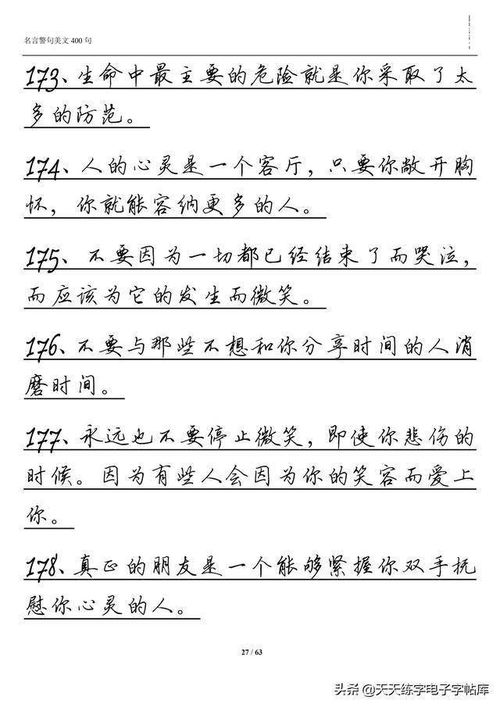 名言警句美文 400 句
173、生命中最主要的危险就是你采取了太
多的防范。
174、人的心灵是一个客厅，只要你敞开胸
怀，你就能容纳更多的人。
175、不要因为一切都已经结束了而哭泣，
而应该为它的发生而微笑。
176、不要与那些不想和你分享时间的人消
磨时间。
177、永远也不要停止微笑，即使你悲伤的
时候。因为有些人会因为你的笑容而爱上
你。
178、真正的朋友是一个能够紧握你双手抚
慰你心灵的人。
27 / 63
头条 @天天练字电子字帖库